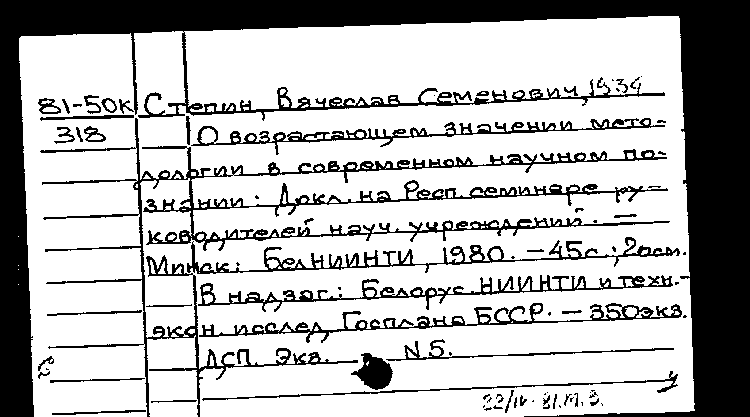 81-50к Степин, Вячеслав Семенович, 1934
318 О возрастающем значении мето-
дологии в современном научном по-
знании: Докл. на Респ. семинаре ру-
ководителей науч. учреждений. —
Минск: БелНИИНТИ, 1980. — 45с.; 20см.
В надзаг.: Белорус. НИИНТИ и техн.-
экон. исслед. Госплана БССР. — 350экз.
ДСП. Экз. N5.
22/IV-81.М.З.